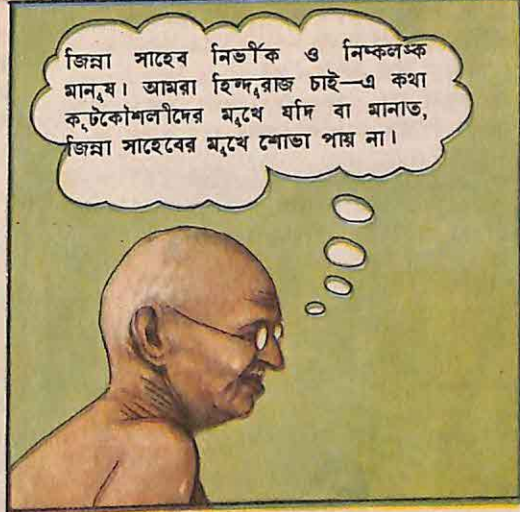 জিন্না সাহেব নির্ভীক ও নিষ্কলঙ্ক
মানুষ। আমরা হিন্দুরাজ চাই—এ কথা
কূটকৌশলীদের মুখে যদি বা মানাত,
জিন্না সাহেবের মুখে শোভা পায় না।